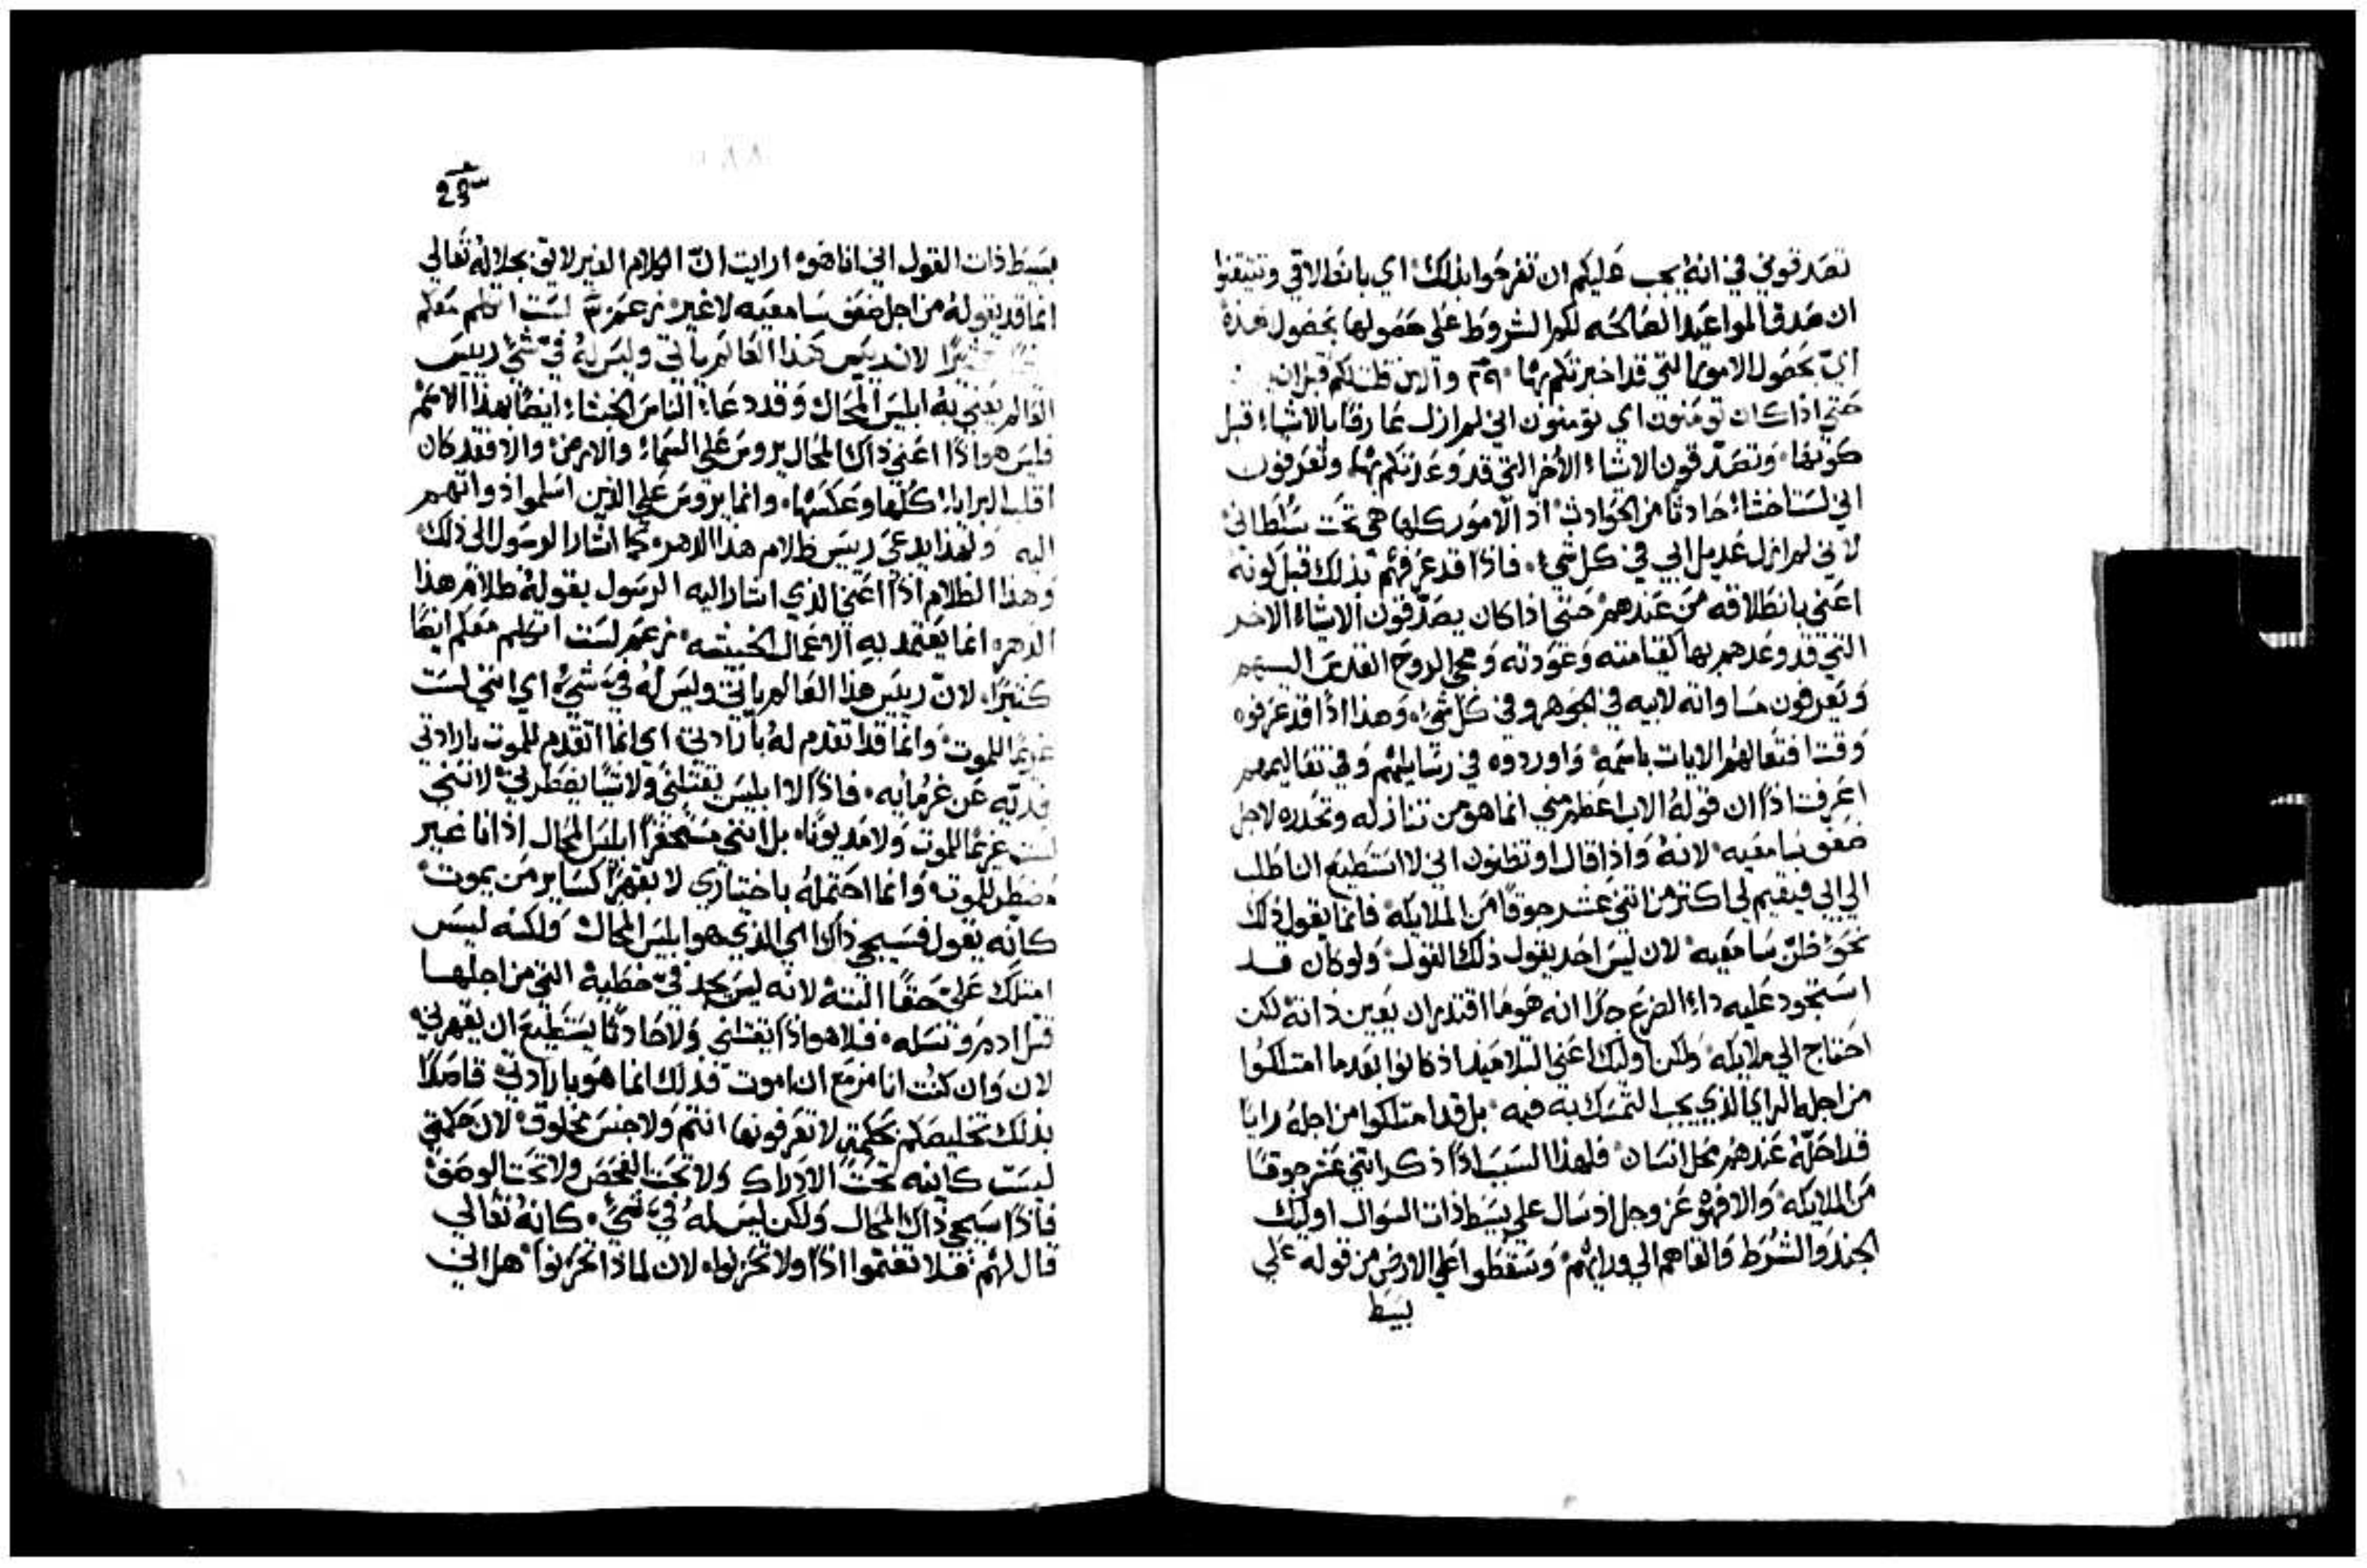 تصدقوني في انه يجب عليكم ان تفرحوا بذلك اي بانطلاقي وتتيقنوا
ان صدق المواعيد الصالحه لكم الشروط على حصولها بحصول هذه
اي بحصول الامور التي قد اخبرتكم بها والان قلت لكم قبل ان
حتي اذا كان تومنون اي تومنون اني لم ازل عارفا بالاشياء قبل
كونها وتصدقون الاشياء الاخر التي قد وعدتكم بها وتعرفون
اني لست اخشاء حادثا من الحوادث اذ الامور كلها هي تحت سلطاني
لاني لم ازل عديل ابي في كل شيء فاذا قد عرفهم بذلك قبل كونه
اعني بانطلاقه من عندهم حتي اذا كان يصدقون الاشياء الاخر
التي قد وعدهم بها كقيامته وعودته ومجي الروح القدس اليهم
ويعرفون مساواته لابيه في الجوهر وفي كل شيء وهذا اذا قد عرفوه
وقت افتعالهم الايات باسمه واوردوه في رسايلهم وفي تعاليمهم
اعرفت اذا ان قوله الاب اعظم مني انما هو من تنازله وتحدره لاجل
ضعف سامعيه لانه واذا قال او تظنون اني لا استطيع ان اطلب
الي ابي فيقيم لي اكثر من اثني عشر جوقا من الملايكه فانما يقول ذلك
نحو ظن سامعيه لان ليس احد يقول ذلك القول ولو كان قد
استحود عليه داء الصرع جدا انه هو ما اقتدر ان يعين ذاته لكن
احتاج الي ملايكه ولكن اوليك اعني التلاميذ اذ كانوا بعد ما امتلكوا
من اجله الراي الذي يجب التمسك به فيه بل قد امتلكوا من اجله رايا
قد احله عندهم محل انسان فلهذا السبب اذا ذكر اثني عشر جوقا
من الملايكه والا فهو عز وجل اذ سال على بسيط ذات السوال اوليك
الجند والشرط فالقاهم الي ورايهم وسقطوا على الارض من قوله على
بسيط
بسيط ذات القول اني انا هو ارايت ان الكلام الغير لايق بجلاله تعالي
انما قد يقوله من اجل ضعف سامعيه لا غير لست اتكلم معكم
كثيرا لان رييس هذا العالم ياتي وليس له في شي رييس
العالم يعني به ابليس المحال وقد دعاء الناس الخبثاء ايضا بهذا الاسم
فليس هو اذا اعني ذاك المحال يروس على السماء والارض والا فقد كان
اقلب البرايا كلها وعكسها وانما يروس على الذين اسلموا ذواتهم
اليه ولهذا يدعى رييس ظلام هذا الدهر كما اشار الرسول الى ذلك
وهذا الظلام اذا اعني الذي اشار اليه الرسول بقوله ظلام هذا
الدهر انما يعتمد به الاعمال الخبيثه لست اتكلم معكم ايضا
كثيرا لان رييس هذا العالم ياتي وليس له في شيء اي انني لست
غريما للموت وانما قد اتقدم له بارادتي اي انما اتقدم للموت بارادتي
فديه عن غرمايه فاذا لا ابليس يقتلني ولا شيا يضطرني لانني
لست غريما للموت ولا مديونا بل انني مستحقرا ابليس المحال اذ انا غير
مضطر للموت وانما احتمله باختياري لا بقهر كساير من يموت
كانه يقول فسيجي ذاك الي الذي هو ابليس المحال ولكنه ليس
امتلك على حقا البته لانه ليس يجد في خطية التي من اجلها
قتل ادم ونسله فلا هو اذا يقتلني ولا حادثا يستطيع ان يقهرني
لان وان كنت انا مزمع ان اموت فذلك انما هو بارادتي قاصدا
بذلك تخليصكم بحكمتي لا تعرفونها انتم ولا جنس مخلوق لان حكمتي
ليست كاينه تحت الادراك ولا تحت الفحص ولا تحت الوصف
فاذا سيجي ذاك المحال ولكن ليس له في شيء كانه تعالي
قال لهم فلا تغتموا اذا ولا تحزنوا لان لماذا تحزنوا هل اني